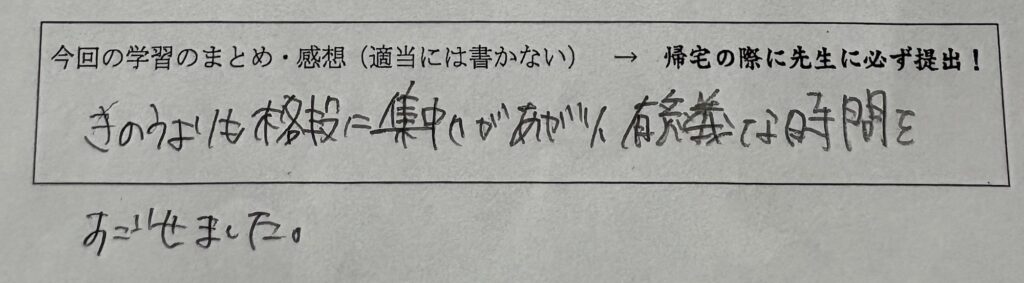 今回の学習のまとめ・感想（適当には書かない）　→　帰宅の際に先生に必ず提出！
きのうよりも格段に集中力があがり 有意義な時間を
すごせました。